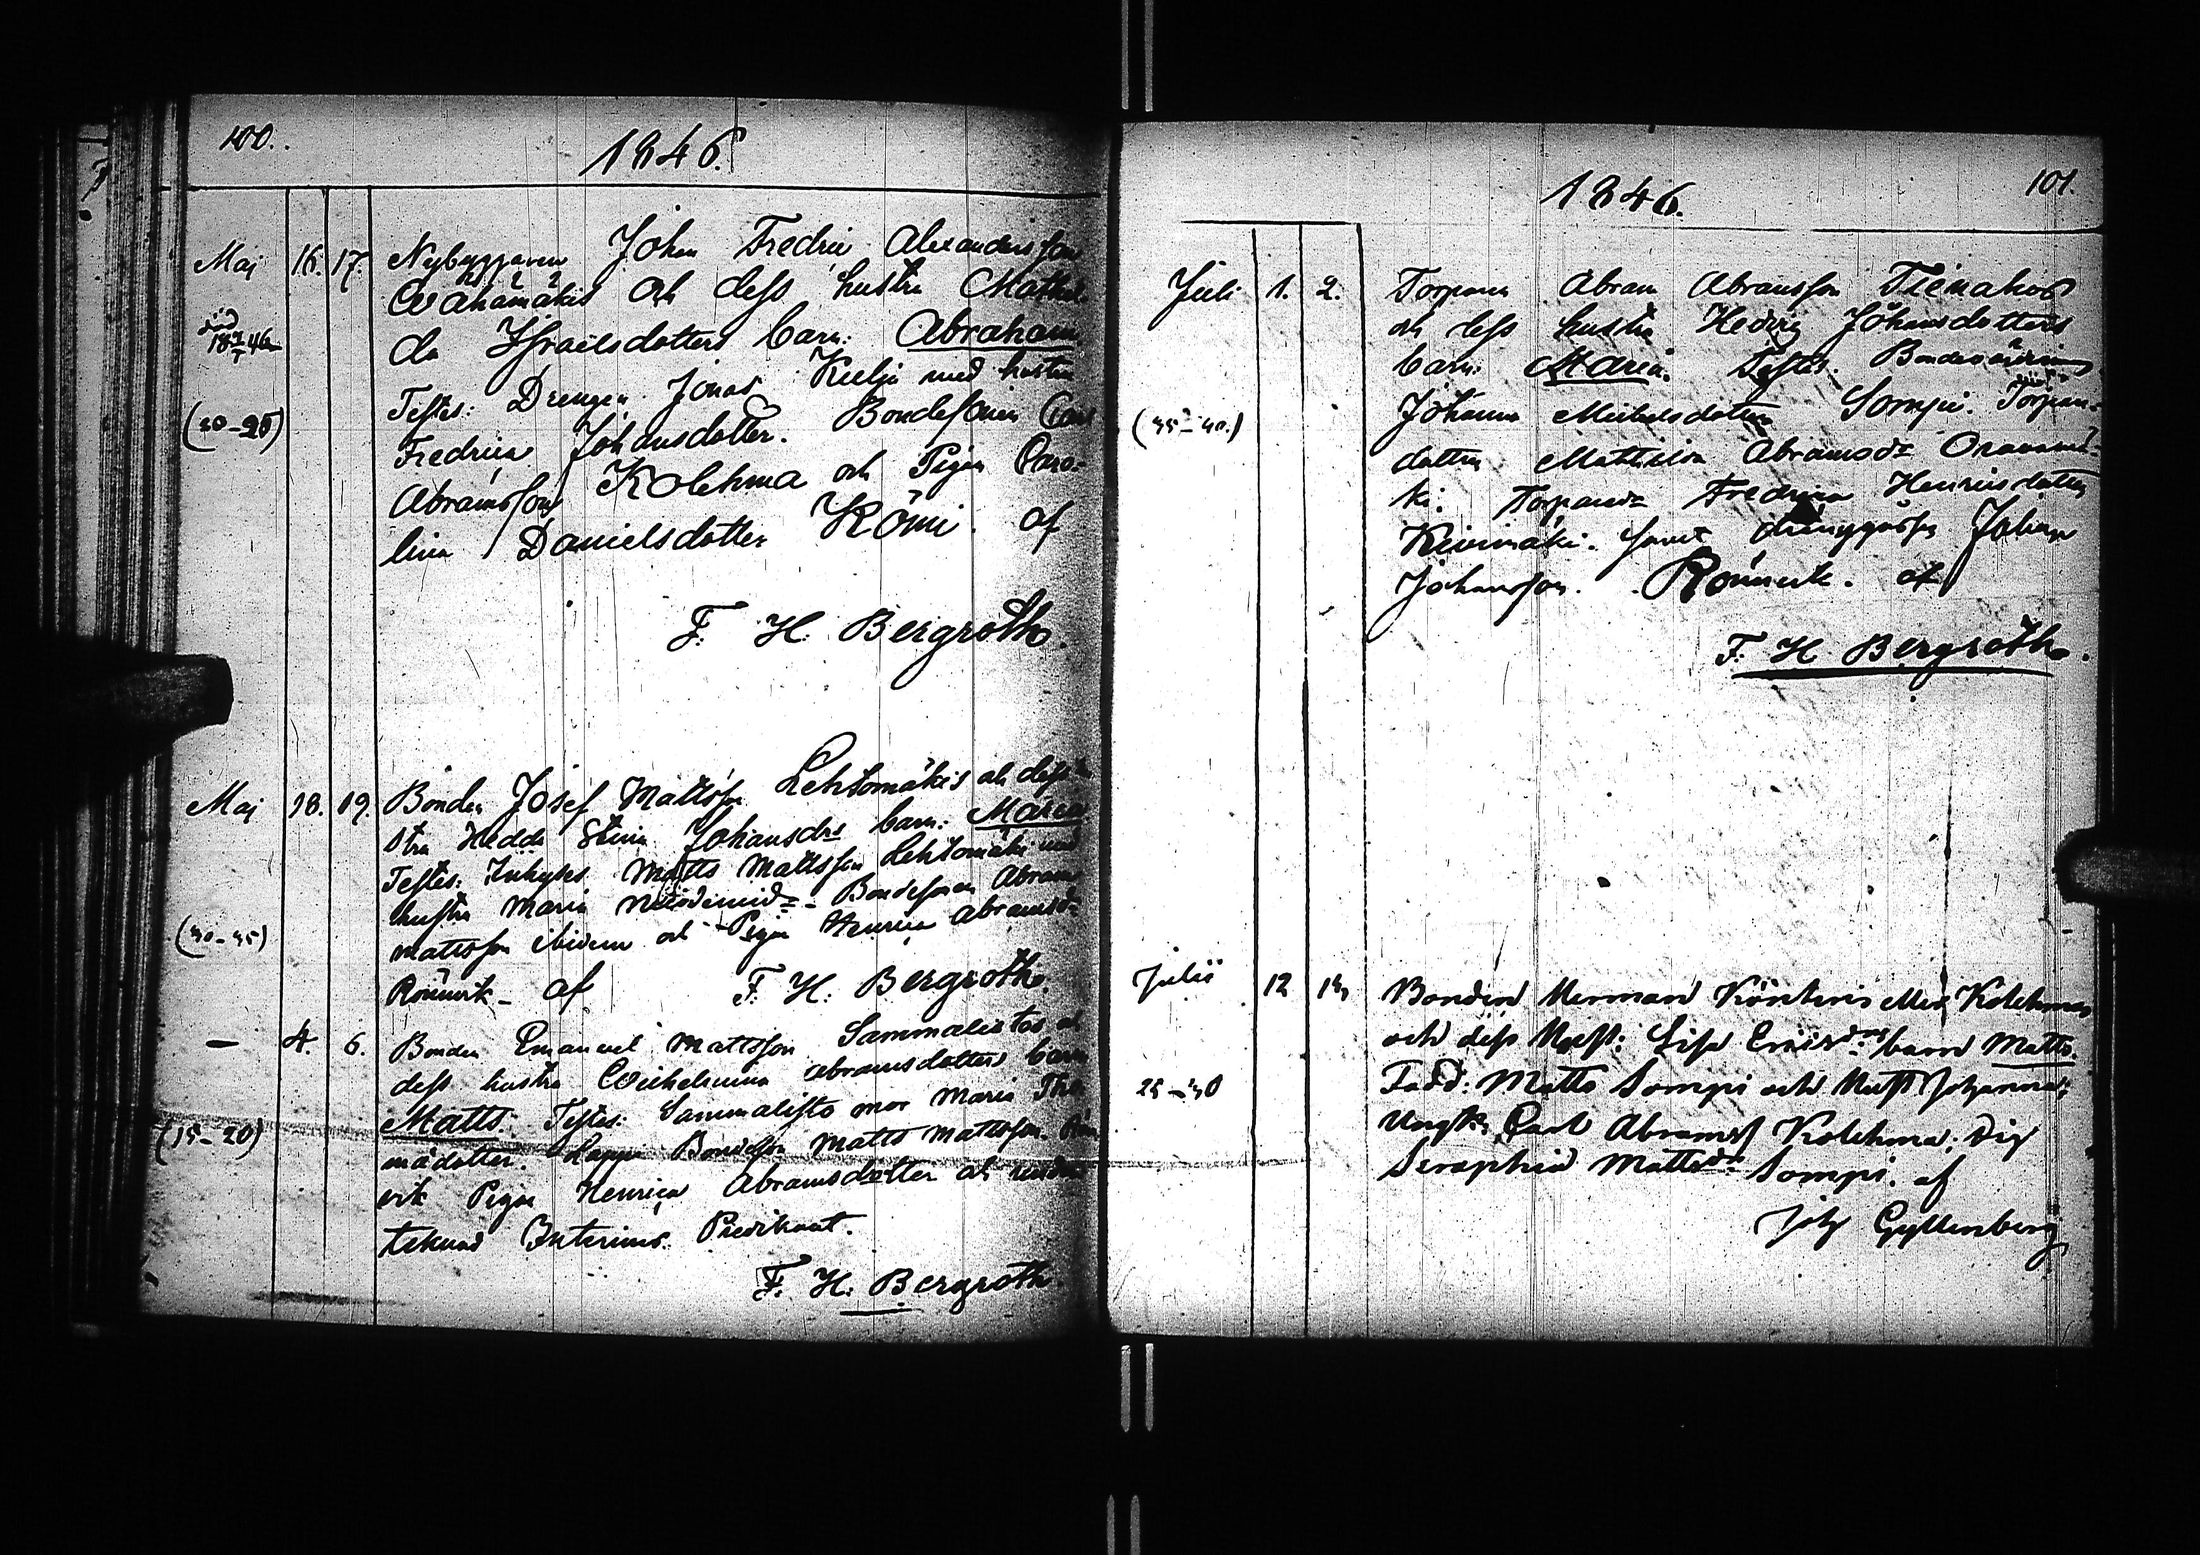 100.
1846.
Maj 16. 17. Nybyggaren Johan Fredric Alexandersson
Wähämäkis och dess hustru Mathil-
da Israelsdotters barn: Abraham.
död
Testes: Drengen Jonas Kulju med hustru
Fredrica Johansdotter. Bondesonen Carl
(20-25)
Abramsson Kolehma och Pigan Caro-
lina Danielsdotter Römi. af
F. H. Bergroth.
Maj 18. 19. Bonden Josef Mattsson Lehtomäkis och dess hu
stru Hedda Stina Johansdrs barn: Maria
Testes: Inhyses Matts Mattsson Lehtomäki med
hustru Maria Bondesonen Abram
(40-45)
Mattsson ibidem och Pigan Henrica Abramsdr
Rönnvik - af F. H. Bergroth.
— 4. 6. Bonden Emanuel Mattsson Sammalistos och
dess hustru Wilhelmina Abramsdotters barn
Matts. Testes: Sammalisto mor Maria Tho
(15-20)
mädotter. Lappi Bondeson Matts Mattsson. Rön
vik Pigan Henrica Abramsdotter och under
teknad Interims Predikant.
F. H. Bergroth
101.
1846.
Juli 1. 2. Torparen Abram Abramsson Tienahos
och dess hustru Hedvig Johansdotters
barn: Maria. Testes: Bondevärdin
Johanna Michelsdotter Sompi. Torpare-
(35-40.)
dotter Mathilda Abramsdr Oravamä-
ki. Torparedr Fredrica Henricsdotter
Kivimäki. samt drenggossen Johan
Johansson. Rönnvik. af
F. H. Bergroth.
Julii 12 14 Bonden Herman Köntinis eller Kolehmas
och dess Hust: Lisa Ericsdrs barn Matts.
25-30
Fadd: Matts Sompi och Hust Johanna;
Ungk. Carl Abramss Kolehma, Pig
Seraphia Mattsdr Sompi. af
Joh Gyllenberg